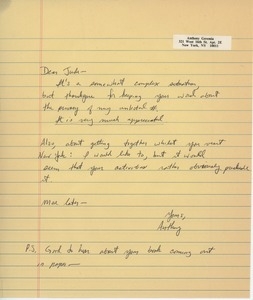 Anthony
321 West 16th St. Apt. 2E
New York, NY 10011
Dear Jack—
It's a somewhat complex situation,
but thank you for keeping your word about
the privacy of my
It is very much appreciated.
Also, about getting together while you visit
New York: I would like to, but it would
seem that your activities rather obviously preclude
it.
More later—
Yours,
Anthony
P.S. Good to hear about your book coming out
in paper—